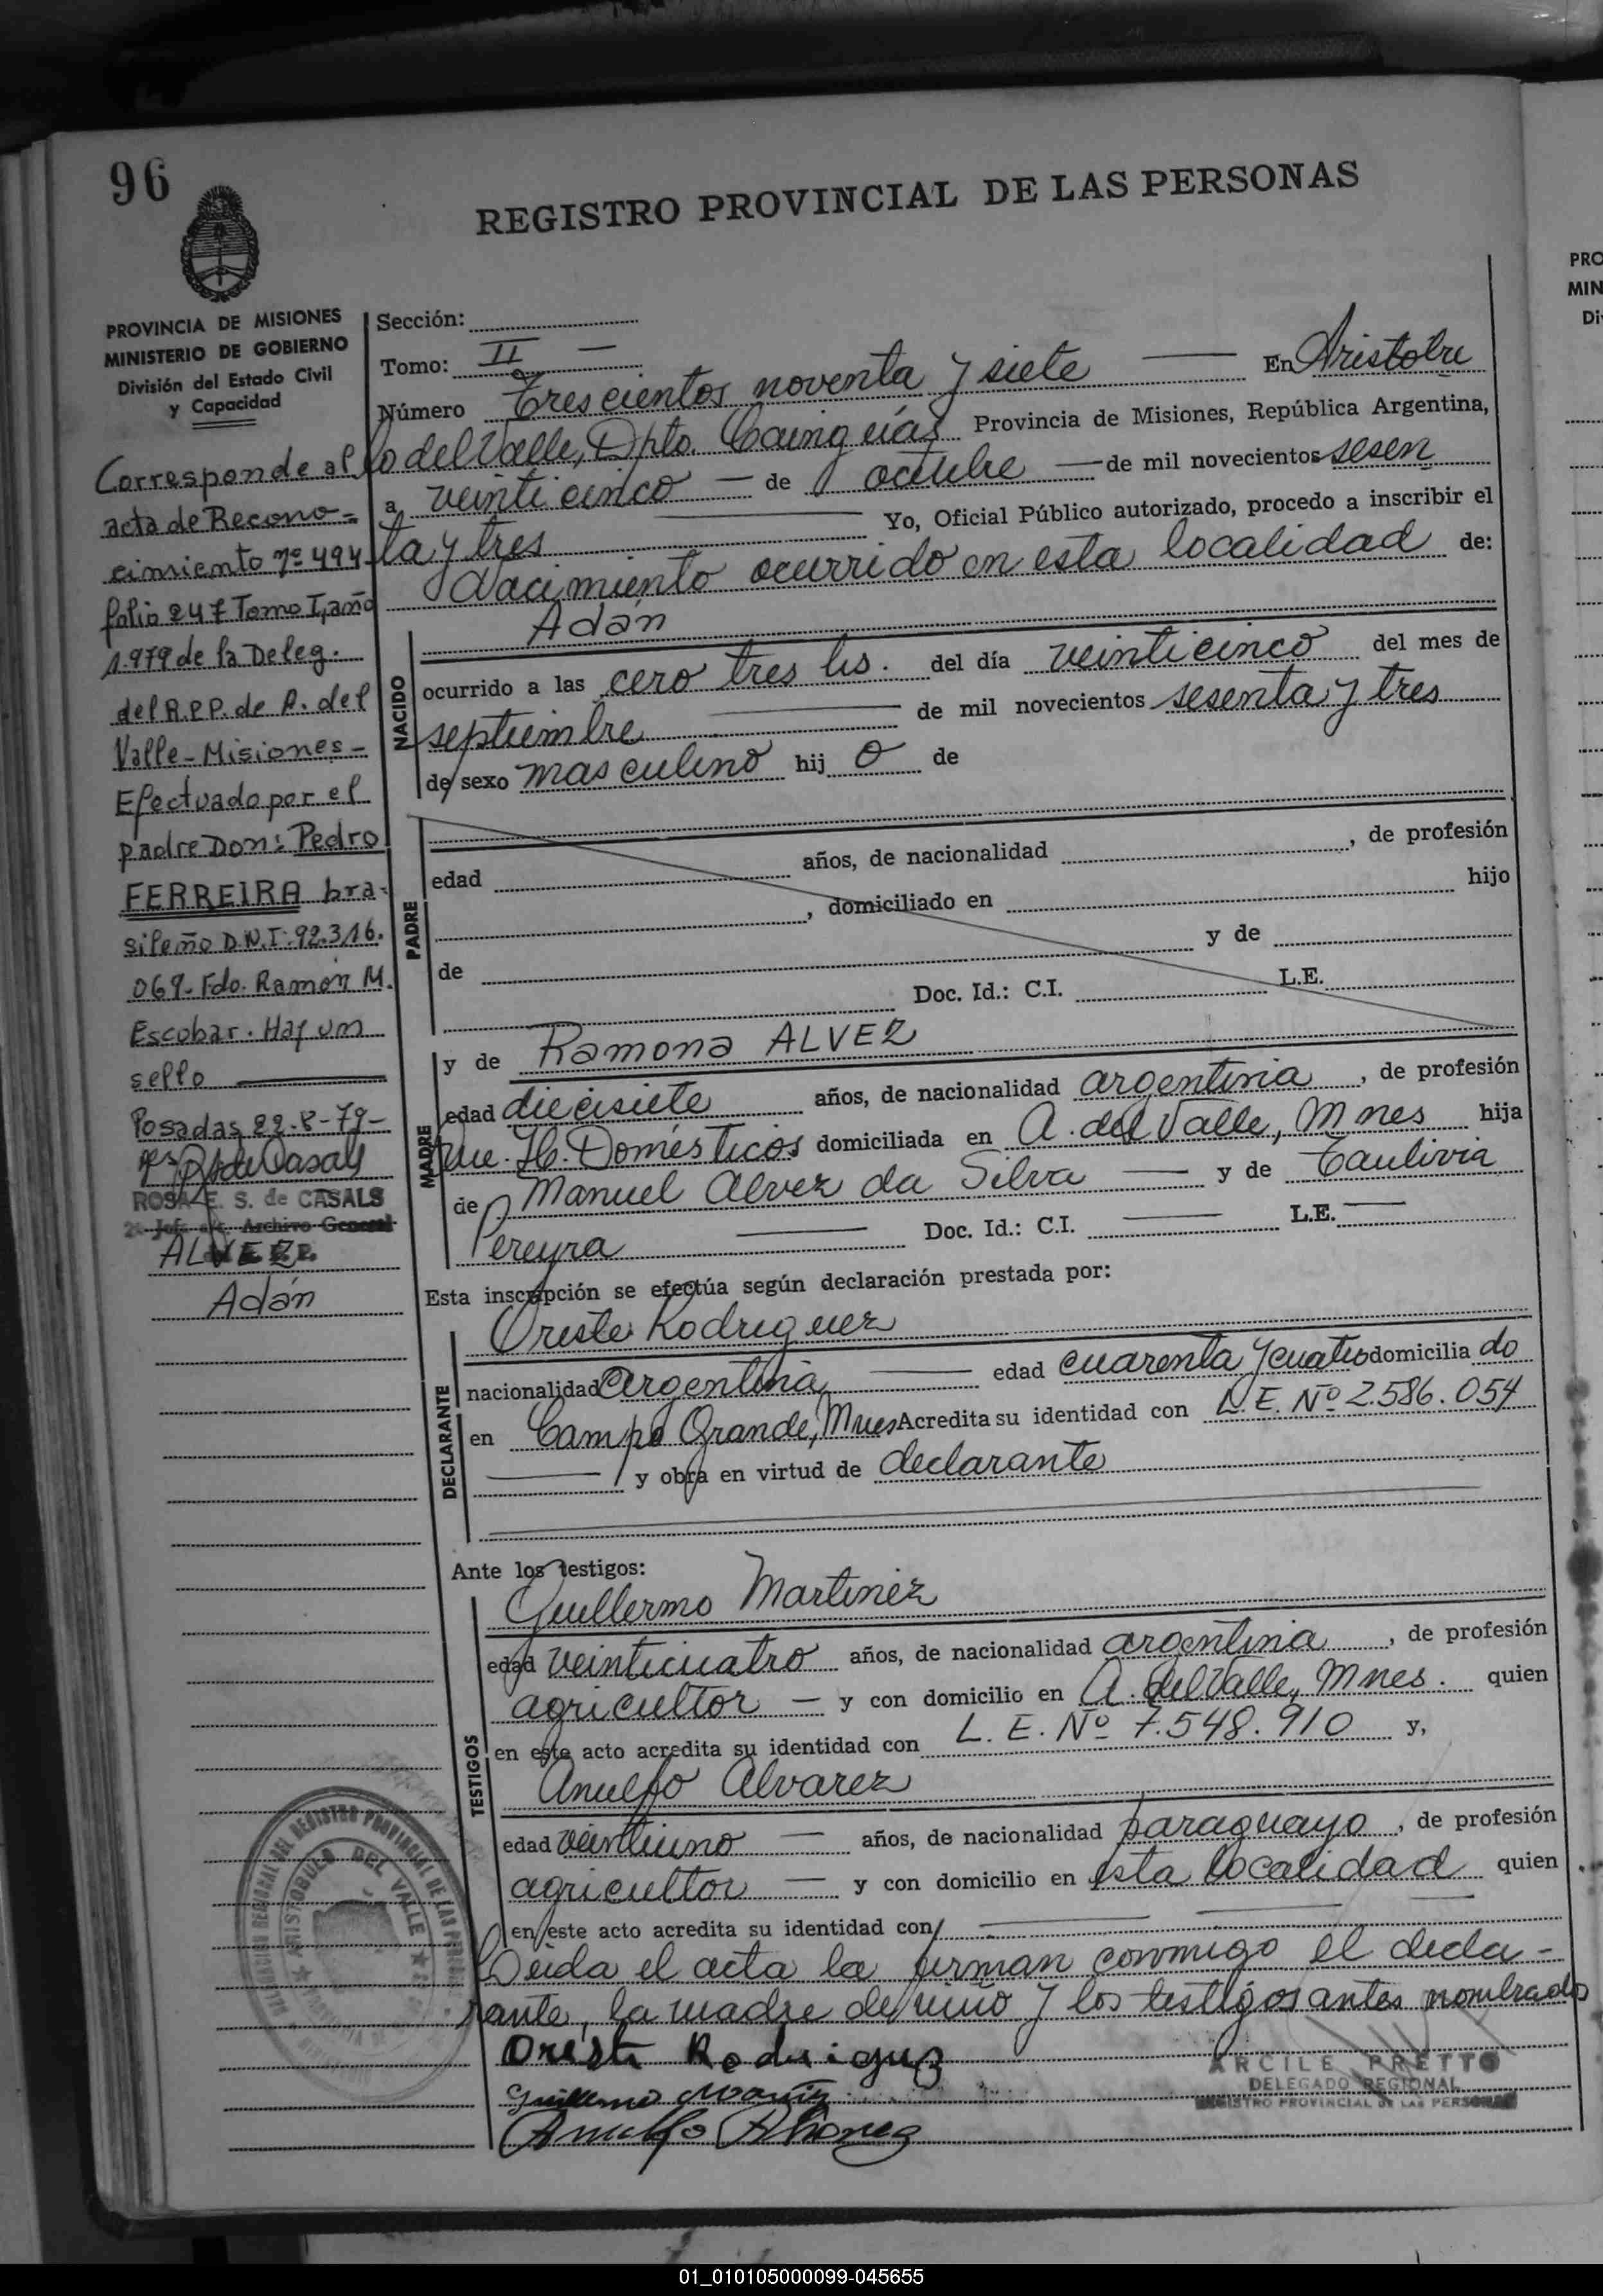 96
REGISTRO PROVINCIAL DE LAS PERSONAS
PROVINCIA DE MISIONES
MINISTERIO DE GOBIERNO
División del Estado Civil
y Capacidad
Sección:
Tomo: II —
Número Trescientos noventa y siete — En Aristobu
lo del Valle, Dpto. Cainguás Provincia de Misiones, República Argentina,
a veinticinco — de octubre — de mil novecientos sesen
ta y tres Yo, Oficial Público autorizado, procedo a inscribir el
Nacimiento ocurrido en esta localidad de:
NACIDO
Adán
ocurrido a las cero tres hs. del día veinticinco del mes de
septiembre — de mil novecientos sesenta y tres
de sexo masculino hij o de
PADRE
edad años, de nacionalidad , de profesión
, domiciliado en hijo
de y de
Doc. Id.: C.I. L.E.
MADRE
y de Ramona ALVEZ
edad diecisiete años, de nacionalidad argentina , de profesión
Que. H. Domésticos domiciliada en A. del Valle, Mnes hija
de Manuel Alvez da Silva — y de Taulivia
Pereyra — Doc. Id.: C.I. — L.E. —
Esta inscripción se efectúa según declaración prestada por:
DECLARANTE
Oreste Rodriguez
nacionalidad argentina — edad cuarenta y cuatro domicilia do
en Campo Grande, Mnes Acredita su identidad con L.E. Nº 2.586.054
— y obra en virtud de declarante
Ante los testigos:
TESTIGOS
Guillermo Martinez
edad veinticuatro años, de nacionalidad argentina , de profesión
agricultor — y con domicilio en A. del Valle, Mnes. quien
en este acto acredita su identidad con L. E. Nº 7.548.910 y,
Anulfo Alvarez
edad veintiuno — años, de nacionalidad paraguayo , de profesión
agricultor — y con domicilio en esta localidad quien
en este acto acredita su identidad con —
Leida el acta la firman conmigo el decla-
rante, la madre del niño y los testigos antes nombrados
Oreste Rodriguez
Guillermo Martinez
Anulfo Alvarez
ARCILE PRETTO
DELEGADO REGIONAL
REGISTRO PROVINCIAL DE LAS PERSONAS
Corresponde al
acta de Recono=
cimiento nº 494
folio 247 Tomo I, año
1.979 de la Deleg.
del R.P.P. de A. del
Valle - Misiones -
Efectuado por el
padre Don: Pedro
FERREIRA bra-
sileño D.N.I. 92.316.
069 - Fdo. Ramón M.
Escobar. Hay un
sello —
Posadas 22-8-79-
ROSA E. S. de CASALS
2a Jefe Archivo General
ALVEZ
Adán
ARISTOBULO DEL VALLE
01_010105000099-045655